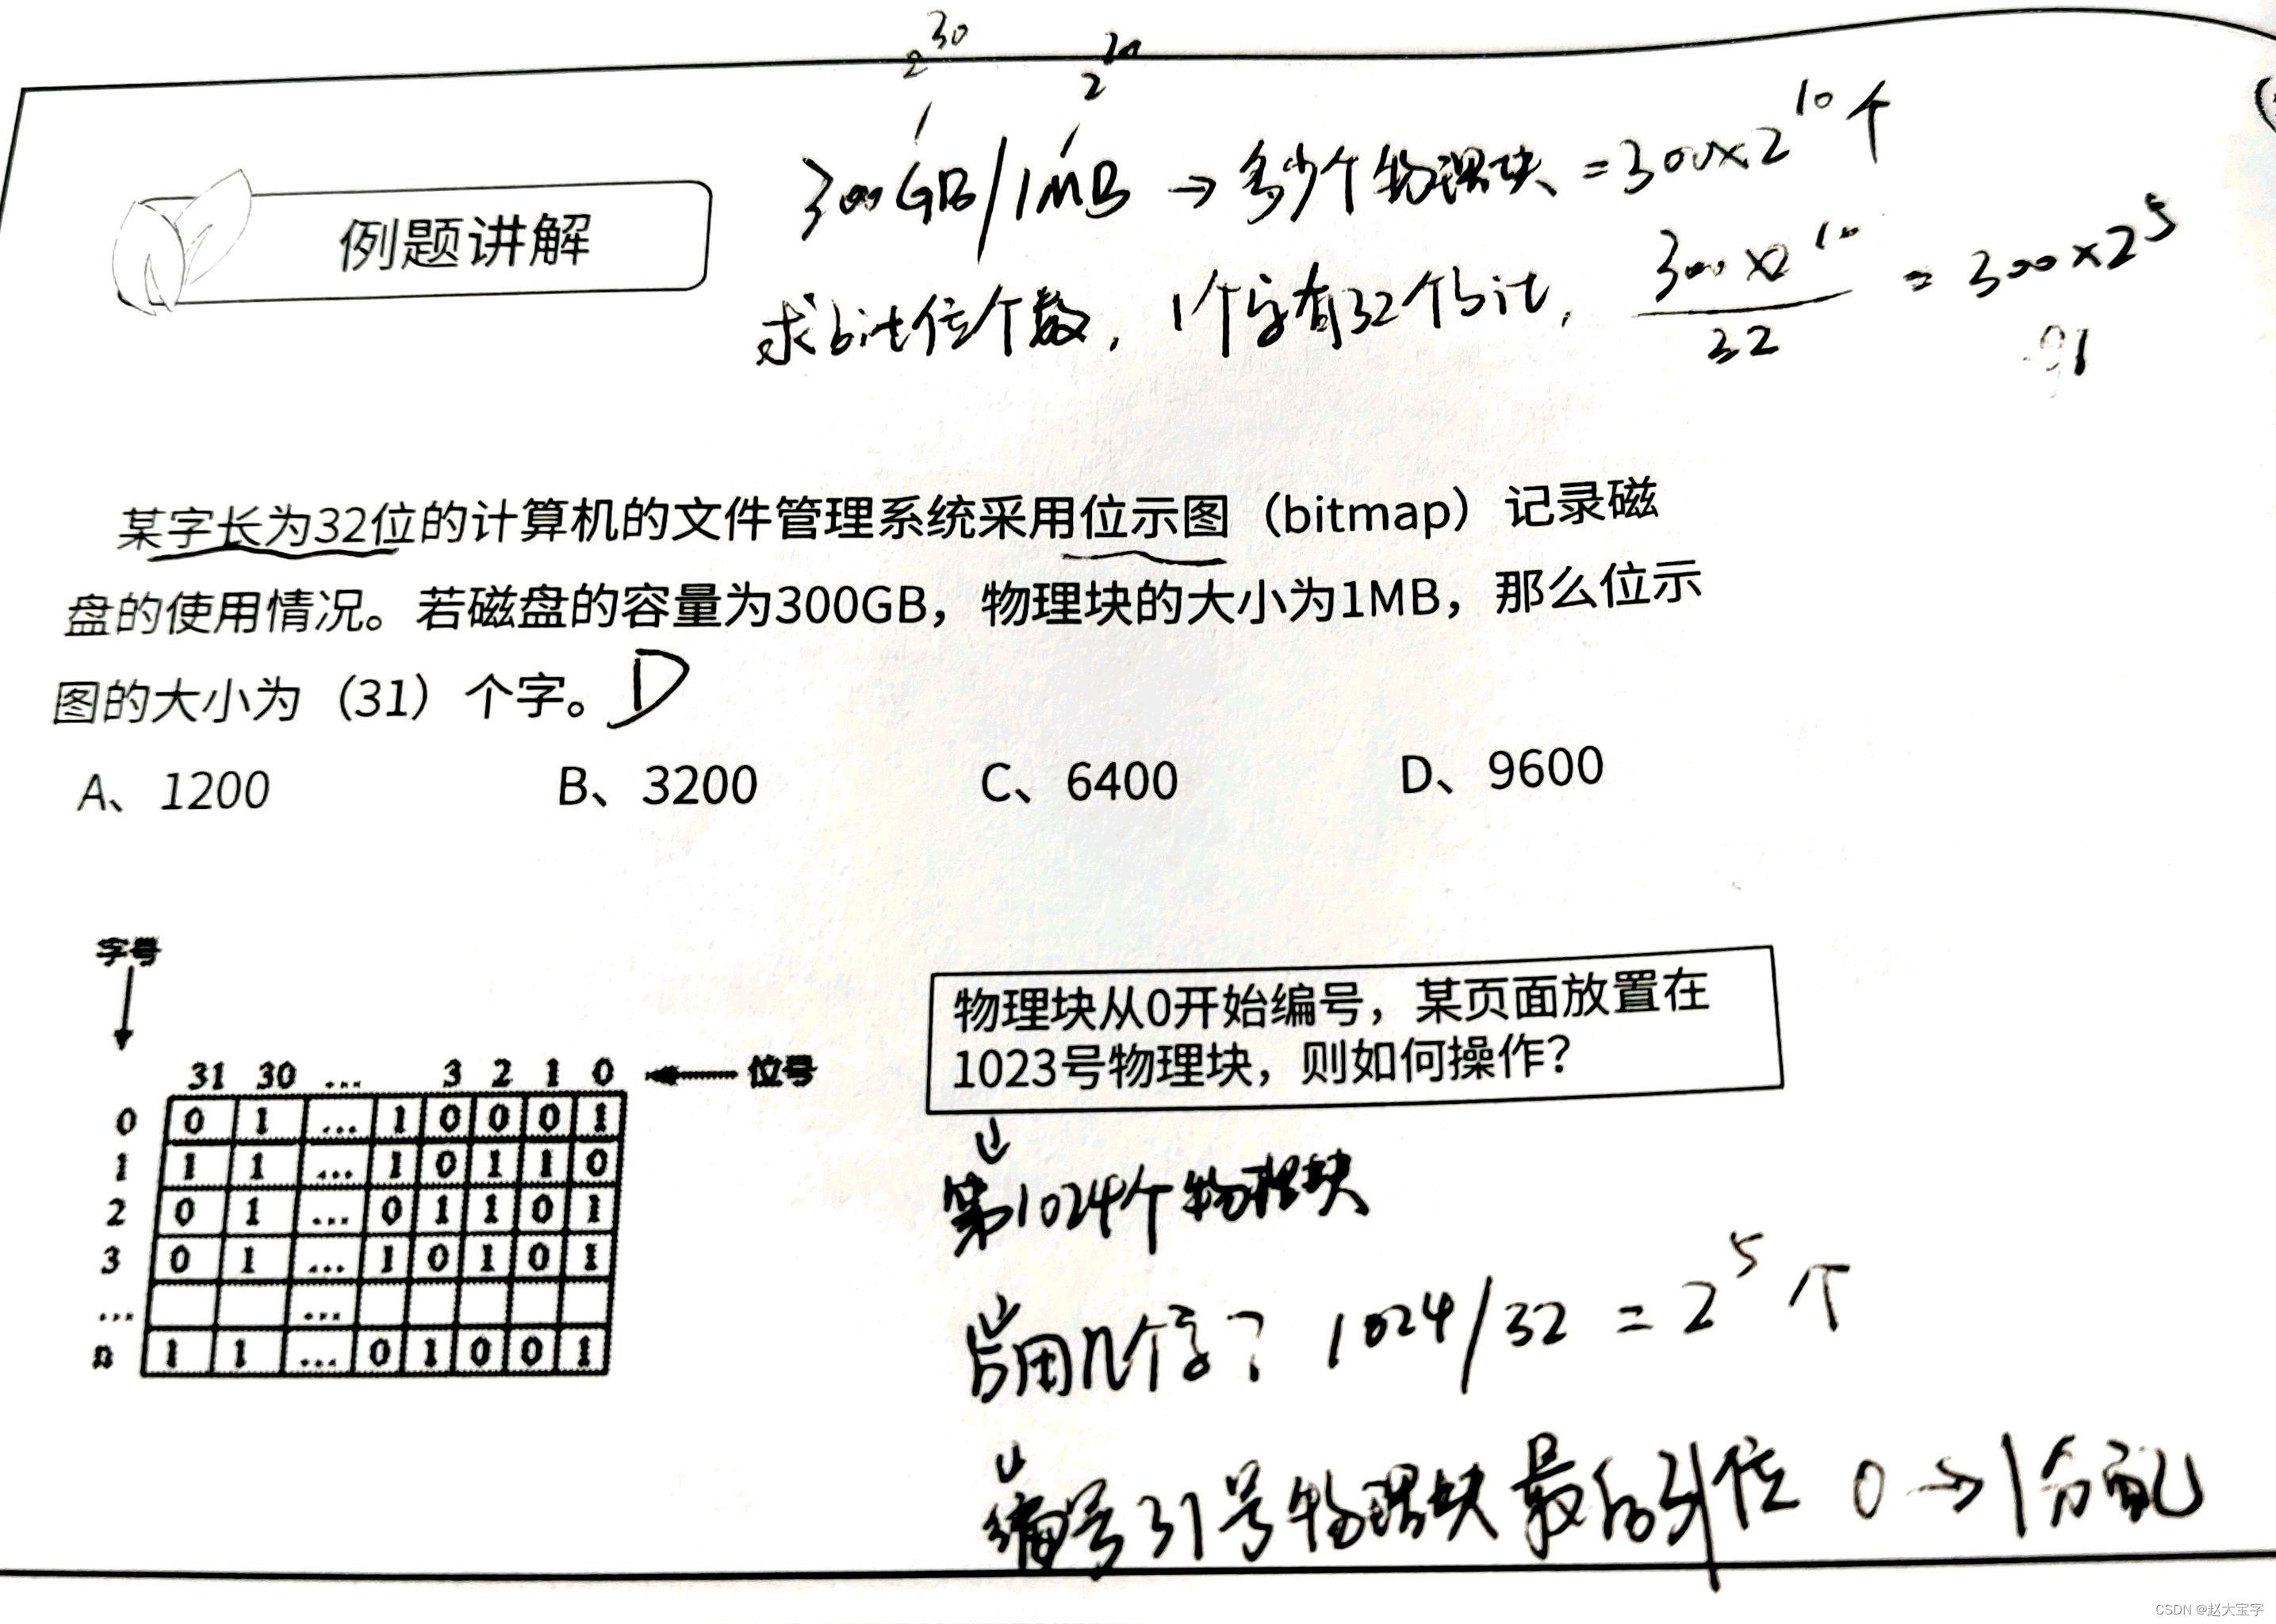 2³⁰ 2²⁰
300GB/1MB → 多少个物理块 = 300×2¹⁰个
求bit位个数, 1个字有32个bit, 300×2¹⁰/32 = 300×2⁵
例题讲解
某字长为32位的计算机的文件管理系统采用位示图（bitmap）记录磁
盘的使用情况。若磁盘的容量为300GB，物理块的大小为1MB，那么位示
图的大小为（31）个字。D
A、1200 B、3200 C、6400 D、9600
字号
31 30 ... 3 2 1 0 位号
0 0 1 ... 1 0 0 0 1
1 1 1 ... 1 0 1 1 0
2 0 1 ... 0 1 1 0 1
3 0 1 ... 1 0 1 0 1
... ...
n 1 1 ... 0 1 0 0 1
物理块从0开始编号，某页面放置在
1023号物理块，则如何操作？
↓
第1024个物理块
↓
占用几个字？ 1024/32 = 2⁵个
↓
编号31号物理块最 位 0→1分配
CSDN @赵大宝字